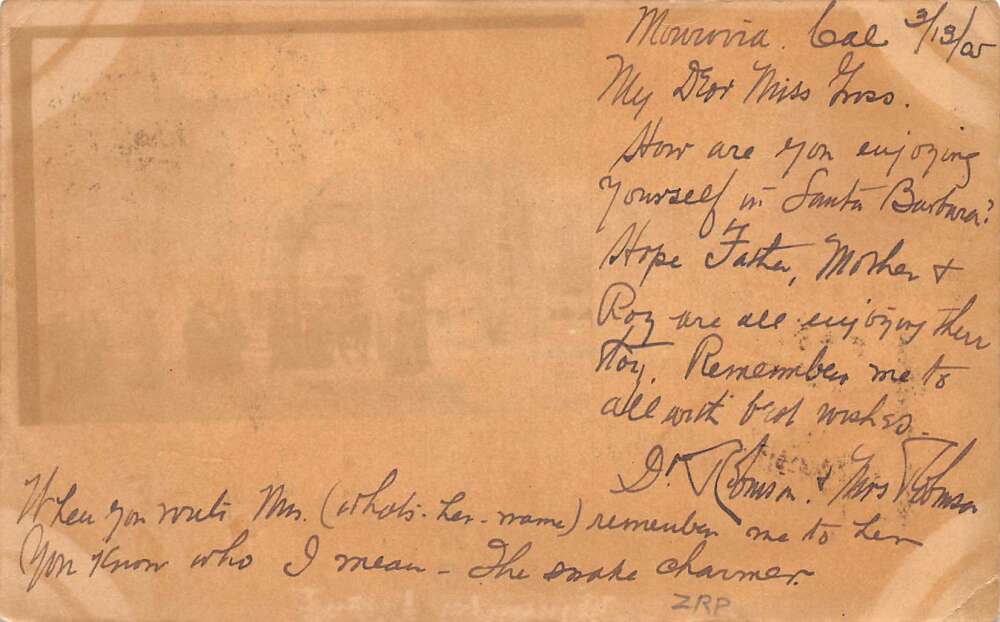 Monrovia. Cal 3/13/05
My Dear Miss Gross.
How are you enjoying
yourself in Santa Barbara?
Hope Father, Mother &
Roy are all enjoying their
stay. Remember me to
all with best wishes.
Dr. Robinson. & Mrs Robinson
When you write Mrs. (what's-her-name) remember me to her
You know who I mean - The snake charmer.
ZRP